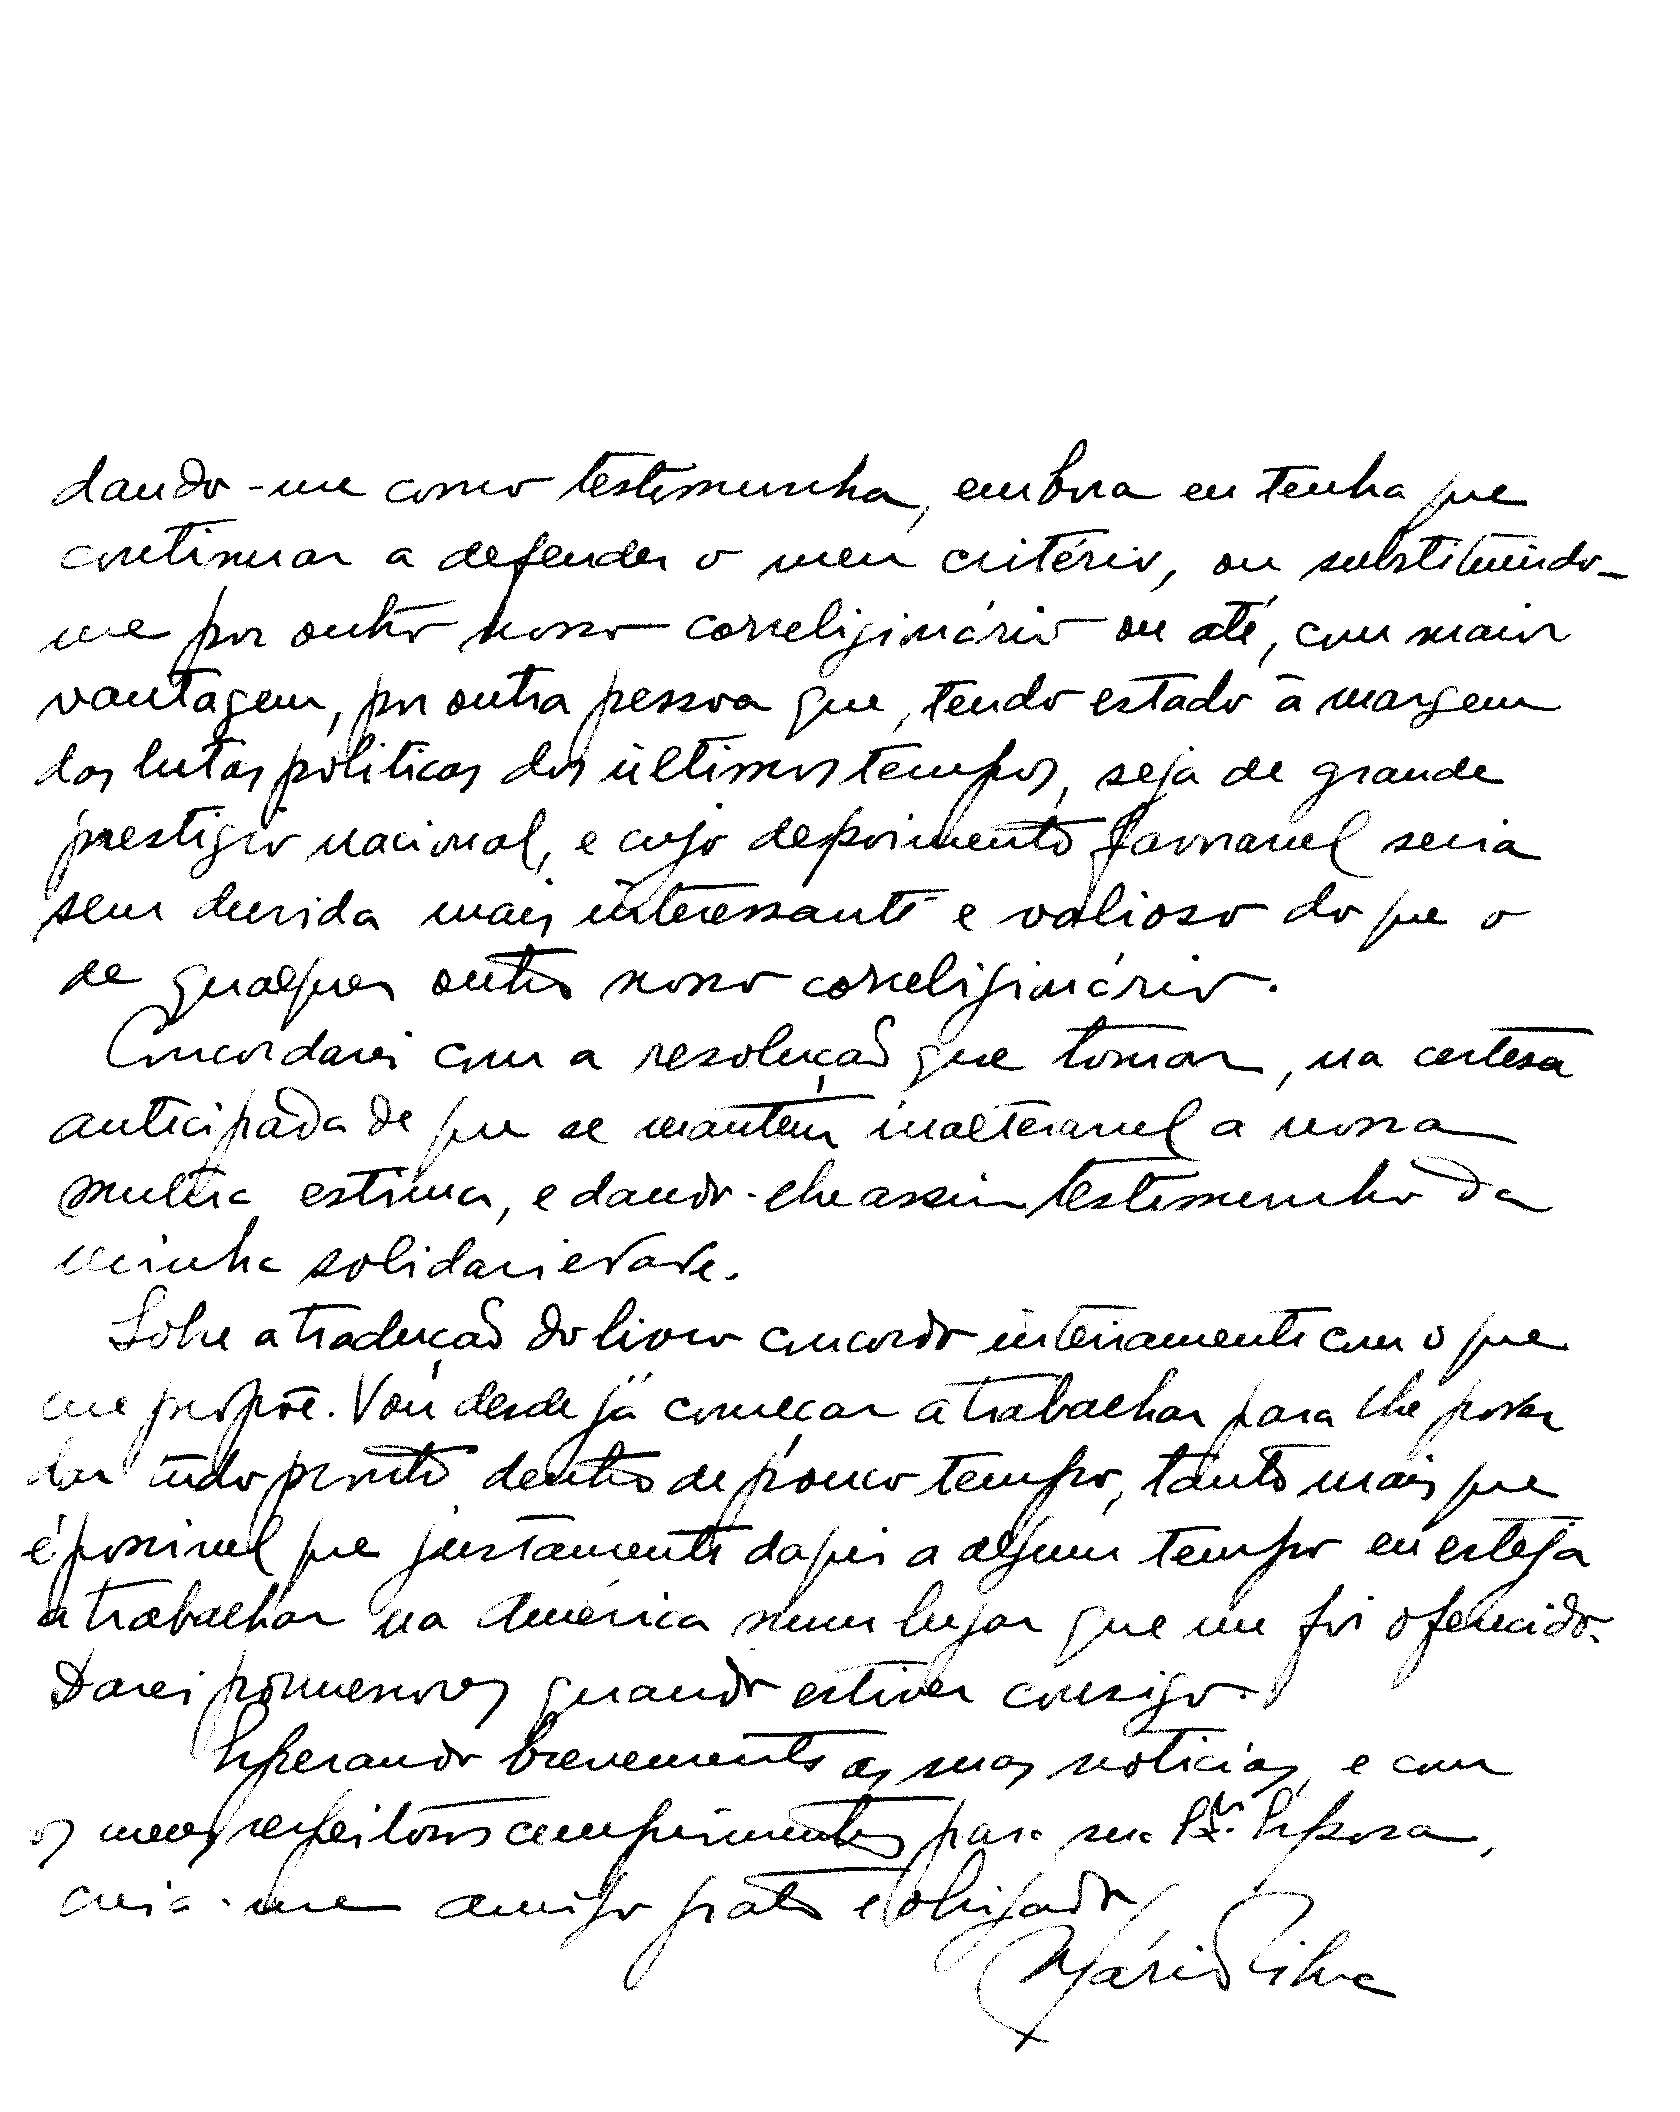 dando-me como testemunha, embora eu tenha que
continuar a defender o meu critério, ou substituindo-
me por outro nosso correligionário ou até, com maior
vantagem, por outra pessoa que, tendo estado à margem
das lutas políticas dos últimos tempos, seja de grande
prestigio nacional, e cujo depoimento favoravel seria
sem duvida mais interessante e valioso do que o
de qualquer outro nosso correligionário.
Concordarei com a resolução que tomar, na certesa
anticipada de que se mantem inalteravel a nossa
mutua estima, e dando-lhe assim testemunho da
minha solidariedade.
Sobre a tradução do livro concordo inteiramente com o que
me propõe. Vou desde já começar a trabalhar para lhe poder
dar tudo pronto dentro de pouco tempo, tanto mais que
é possivel que justamente daqui a algum tempo eu esteja
a trabalhar na América num lugar que me foi oferecido.
Darei pormenores quando estiver consigo.
Esperando brevemente as suas noticias, e com
os meus respeitosos cumprimentos para sua Esposa,
creia-me amigo grato e obrigado
Mário Silva